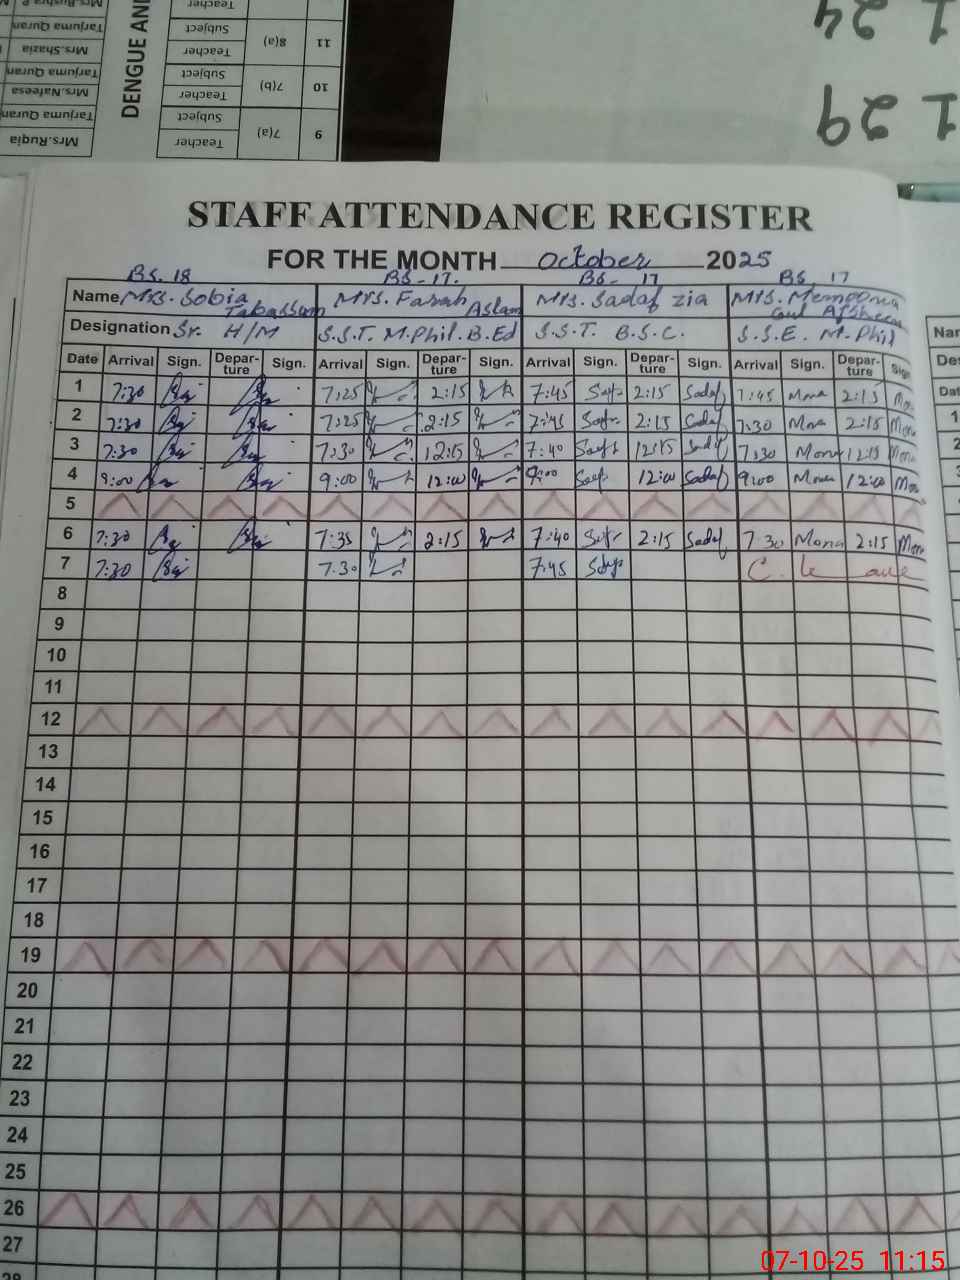 Teacher
Mrs.Bushra
Tarjuma Quran
Mrs.Shazia
Tarjuma Quran
Mrs.Nafeesa
Tarjuma Quran
Mrs.Ruqia
DENGUE AND
Subject
11 8(a) Teacher
Subject
10 7(b) Teacher
Subject
9 7(a) Teacher
1 24
1 29
STAFF ATTENDANCE REGISTER
FOR THE MONTH October 2025
BS. 18 BS - 17. BS - 17 BS 17
Name Mrs. Sobia Tabassum Mrs. Farah Aslam Mrs. Sadaf zia Mrs. Memoona Gul
Designation Sr. H/M S.S.T. M.Phil. B.Ed S.S.T. B.S.C. S.S.E. M.Phil
Date Arrival Sign. Depar-ture Sign. Arrival Sign. Depar-ture Sign. Arrival Sign. Depar-ture Sign. Arrival Sign. Depar-ture Sign
1 7:30 7:25 2:15 7:45 2:15 Sadaf 7:45 Mona 2:15 Mona
2 7:30 7:25 2:15 7:45 2:15 Sadaf 7:30 Mona 2:15 Mona
3 7:30 7:30 12:15 7:40 12:15 Sadaf 7:30 Mona 12:15 Mona
4 9:00 9:00 12:00 9:00 12:00 Sadaf 9:00 Mona 12:00 Mona
5
6 7:30 7:35 2:15 7:40 2:15 Sadaf 7:30 Mona 2:15 Mona
7 7:30 7:30 7:45 C. Leave
8
9
10
11
12
13
14
15
16
17
18
19
20
21
22
23
24
25
26
27
28
Nar
De
Dat
1
2
07-10-25 11:15